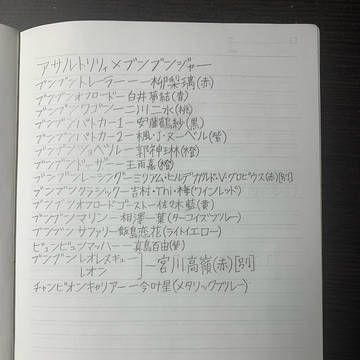 アサルトリリィ×ブンブンジャー
ブンブントレーラー一柳梨璃(赤)
ブンブンオフロード一白井夢結(青)
ブンブンワゴン一二川二水(桃)
ブンブンパトカー1一安藤鶴紗(黒)
ブンブンパトカー2一楓・J・ヌーベル(紫)
ブンブンショベルー郭神琳(橙)
ブンブンドーザー一王雨嘉(橙)
ブンブンレーシングーミリアム・ヒルデガルド・V・グロピウス(赤)[別]
ブンブンクラシックー吉村・Thi・梅(ワインレッド)
ブンブンオフロードゴーストー佐々木藍(青)
ブンブンマリンー相澤一葉(ターコイズブルー)
ブンブンサファリー飯島恋花(ライトイエロー)
ビュンビュンマッハー一真島百由(紫)
ブンブンレオレスキュー
レオン
一宮川高嶺(赤)[別]
チャンピオンキャリアー一今叶星(メタリックブルー)